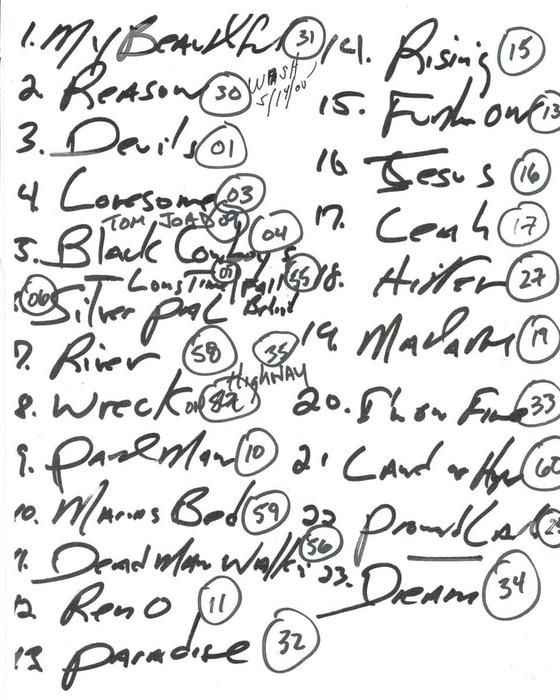 1. My Beautiful 31
2. Reason 30
WASH
5/14/05
3. Devils 01
4. Lonesome 03
TOM JOAD 09
5. Black Cowboy's 04
Long Time Fall 55
Behind
06 Silver Pal
7. River 58 35
HIGHWAY
8. Wreck on
9. Paid Man 10
10. Marias Bed 59
11. Dead Man Walkin 56
12 Reno 11
13 Paradise 32
14. Rising 15
15. Further On 13
16 Jesus 16
17. Leah 17
18. Hitter 27
19. Matam 19
20. I'm on Fire 33
21 Land of Hope 60
22 Promised Land
23. Dream 34